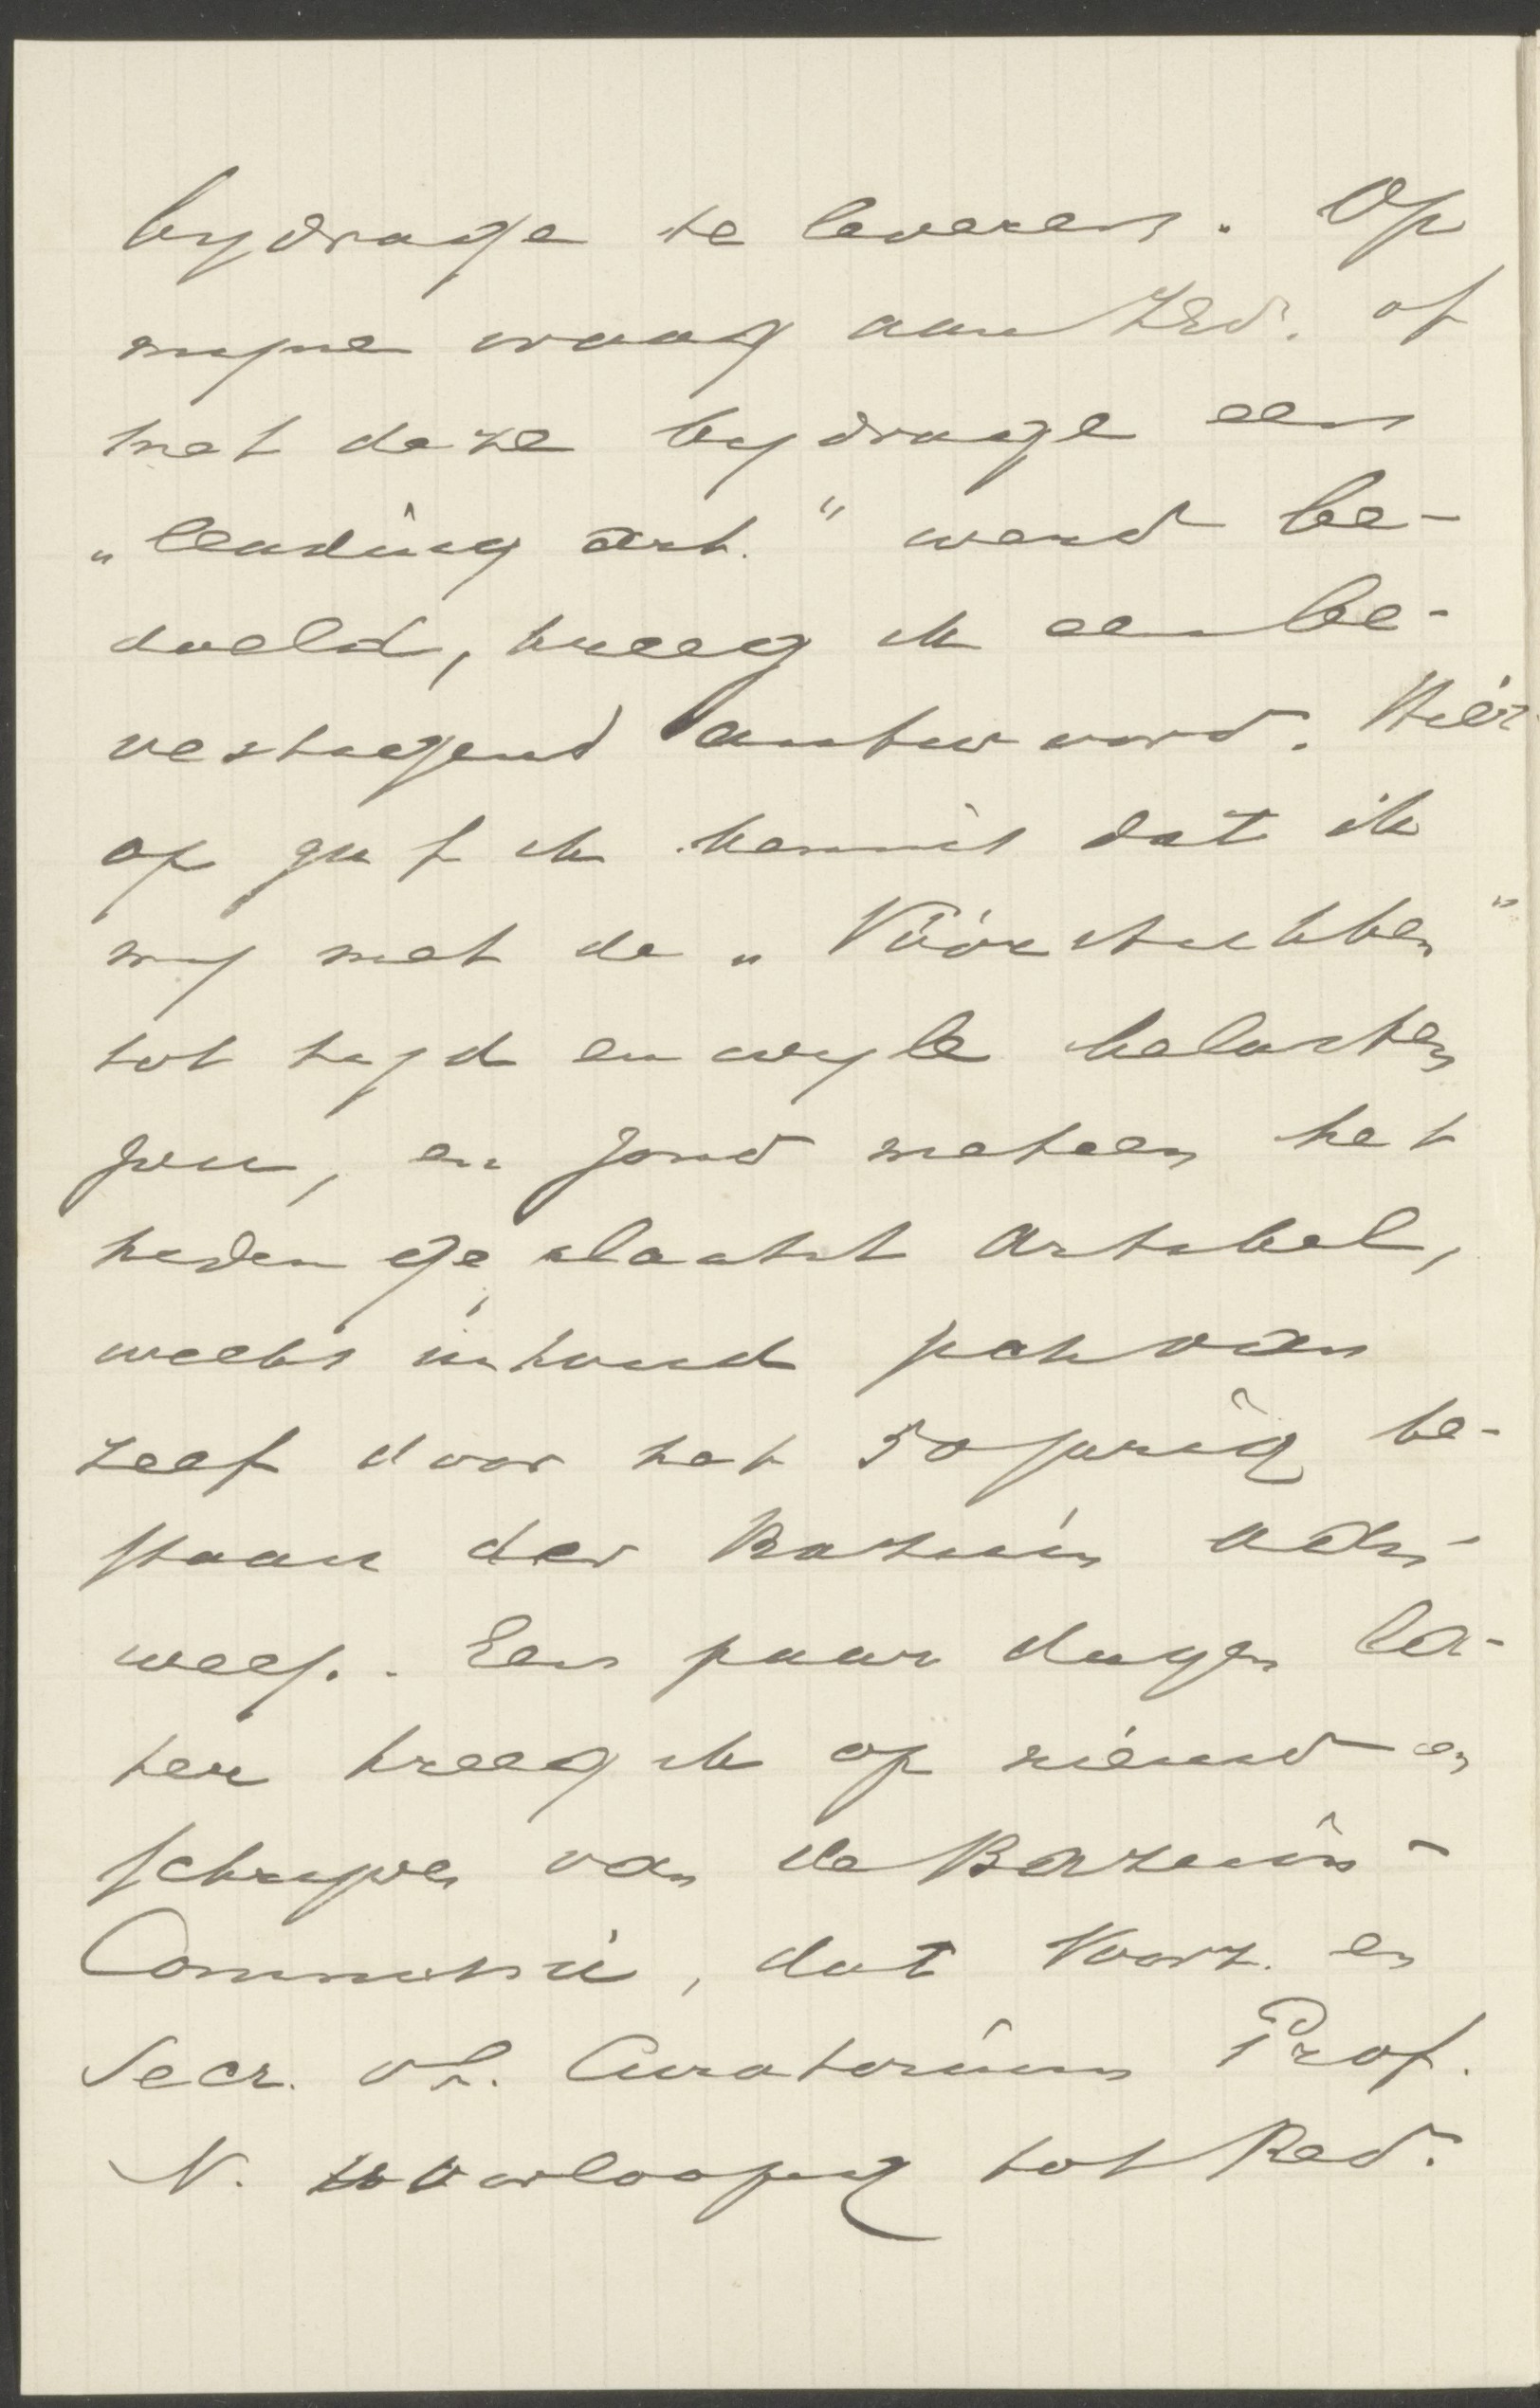 bijdrage te leveren. Op
mijne vraag aan ZEd. of
met deze bijdrage een
„leading art." werd be-
doeld, kreeg ik een be-
vestigend antwoord. Hier-
op gaf ik kennis dat ik
mij met de „Vóórstukken"
tot tijd en wijle belasten
zou, en zond meteen het
heden geplaatst artikel,
welks inhoud
zelf door het 50 jarig be-
staan der Bazuin
Een paar dagen la-
ter kreeg ik op nieuw een
schrijven van de Bazuin-
Commissie, dat Voorz. en
Secr. v/h. Curatorium Prof.
N. voorloopig tot Red.